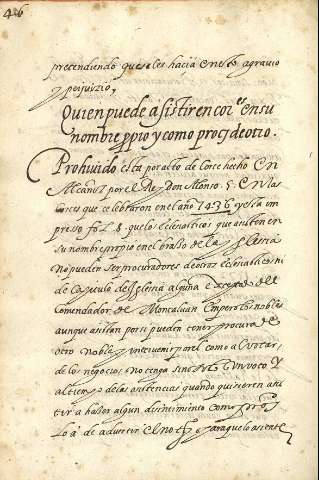 46
pretendiendo que se les hacia en esto agravio
y perjuizio,
Quien puede asistir en cor.^es en su
nombre ppio y como proc^r de otro.
Prohiuido esta por acto de corte hecho En
Alcañiz por el Rey Don Alonso. 5. En las
Cortes que celebraron en el año 1436 y esta im
preso fol. 8. que los eclesiasticos que asisten en
su nombre propio en el brasso de la yglesia
No pueden ser procuradores de otros eclesiasticos ni
de Capitulo de Iglesia alguna excepto el
Comendador de Montalvan Empero los nobles
aunque asistan por si pueden tener procura de
otro noble e intervenir por el como al votar
de los negocios no tenga sino un voto Y
altienpo de las asistencias quando quisieren asis
tir a hazer algun disentimiento como
Lo a de advertir el not^o para que lo asiente